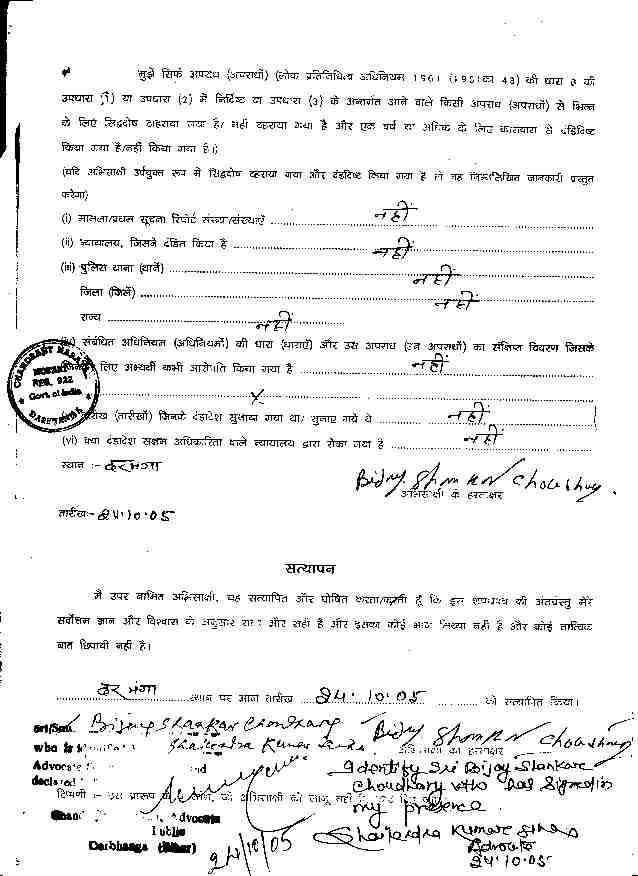 मुझे सिर्फ अपराध (अपराधों) (लोक प्रतिनिधित्व अधिनियम 1961 (1951 का 43) की धारा 8 की
उपधारा (1) या उपधारा (2) में निर्दिष्ट या उपधारा (3) के अन्तर्गत आने वाले किसी अपराध (अपराधों) से भिन्न
के लिए सिद्धदोष ठहराया गया है/ नहीं ठहराया गया है और एक वर्ष या अधिक के लिए कारावास से दंडिदिष्ट
किया गया है/नहीं किया गया है।)
(यदि अभिसाक्षी उर्पयुक्त रूप में सिद्धदोष ठहराया गया और दंडदिष्ट किया गया है तो वह निम्नलिखित जानकारी प्रस्तुत
करेगा)
(i) मामला/प्रथम सूचना रिपोर्ट संख्या/संख्याएँ नहीं
(ii) न्यायालय, जिसने दंडित किया है नहीं
(iii) पुलिस थाना (थानें) नहीं
जिला (जिलें) नहीं
राज्य नहीं
संबंधित अधिनियम (अधिनियमों) की धारा (धाराएँ) और उस अपराध (उन अपराधों) का संक्षिप्त विवरण जिसके
लिए अभ्यर्थी कभी आरोपति किया गया है नहीं
X
(तारीखों) जिनके दंडादेश सुनाया गया था/ सुनाए गये थे नहीं
(vi) क्या दंडादेश सक्षम अधिकारिता वाले न्यायालय द्वारा रोका गया है नहीं
CHANDRAKANT
REG. 922
Govt. of India
DARBHANGA
स्थान :- दरभंगा
Bijoy Shankar Choudhary
अभिसाक्षी के हस्ताक्षर
तारीख:- 24.10.05
सत्यापन
मैं उपर नामित अभिसाक्षी, यह सत्यापित और घोषित करता/करती हूँ कि इस शपथपत्र की अंतर्वस्तु मेरे
सर्वोत्तम ज्ञान और विश्वास के अनुसार सत्य और सही है और इसका कोई भाग मिथ्या नहीं है और कोई तात्विक
बात छिपायी नहीं है।
दरभंगा स्थान पर आज तारीख 24.10.05 को सत्यापित किया।
Sri/Smt. Bijoy Shankar Choudhary
Bijoy Shankar Choudhary
who is Shailendra Kumar
अभिसाक्षी का हस्ताक्षर
Advocate
I dentify Sri Bijoy Shankar
declared
Choudhary who has signed in
टिप्पणी :- इस प्रारूप अभिसाक्षी को लागू नहीं
my presence
Advocate
Public
Shailendra Kumar
Darbhanga (Bihar)
24/10/05
Advocate
24.10.05